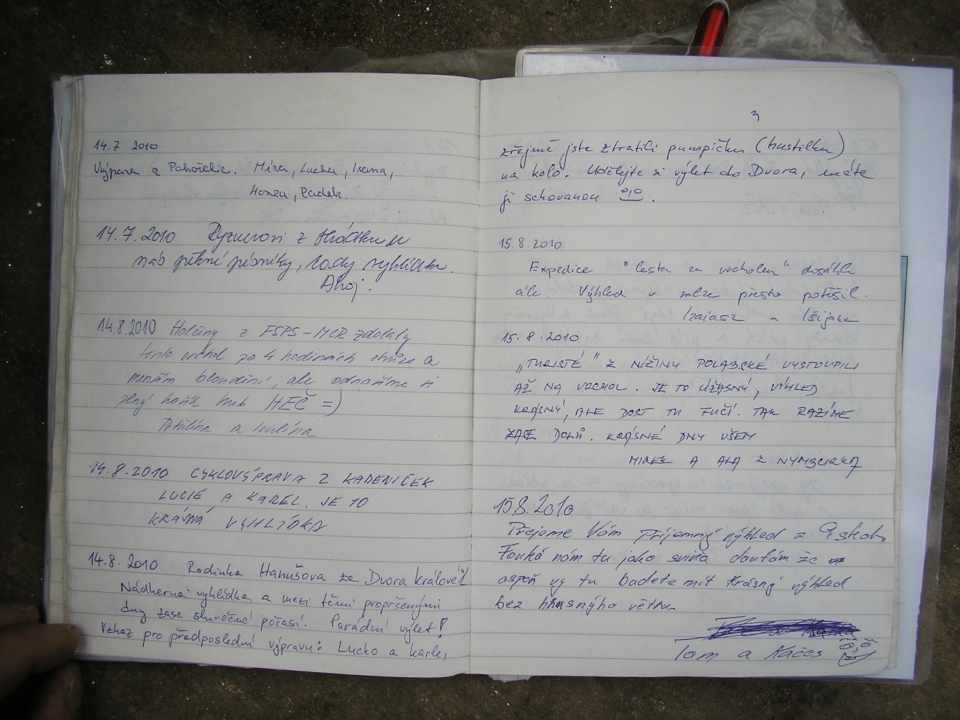 14.7 2010
Výprava z Pohořelic. Míra, Lucka, Ivana,
Honza, Radek.
14.7.2010
nás pěkné písničky, tady vyhlídka.
Ahoj.
14.8.2010 Holčiny z FSPS-MCR zdolaly
tento vrchol po 4 hodinách chůze a
menším bloudění, ale odnášíme si
plný batoh hub HEČ =)
a
14.8.2010 CYKLOVÝPRAVA Z KADEŘÍČEK
LUCIE A KAREL. JE TO
KRÁSNÁ VYHLÍDKA
14.8. 2010 Rodinka Hanušova ze Dvora Králové
Nádherná vyhlídka, a mezi těmi propršenými
dny zase slunečné počasí. Parádní výlet!
Vzkaz pro předposlední výpravu: Lucko a Karle,
zřejmě jste ztratili pumpičku (hustilku)
na kolo. Udělejte si výlet do Dvora, máte
ji schovanou.
15.8.2010
Expedice "cesta za vrcholem" dosáhla
cíle. Výhled v mlze přesto potěšil.
Izaiasz a
15.8.2010
„TURISTÉ" Z NÍŽINY POLABSKÉ VYSTOUPILI
AŽ NA VRCHOL. JE TO ÚŽASNÝ, VÝHLED
KRÁSNÝ, ALE DOST TU FUČÍ. TAK RAZÍME
ZASE DOLŮ. KRÁSNÉ DNY VŠEM
MIREK A ALA Z NYMBURKA
15.8.2010
Přejeme Vám příjemný výhled z
Fouká nám tu jako svině doufám že
aspoň vy tu budete mít krásný výhled
bez hnusnýho větru.
Tom a Káčes